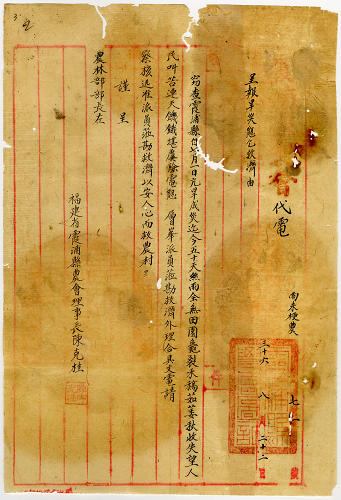 七一
南未梗農
三十六 八月二十二
會代電
呈報旱災懇乞救濟由
竊查霞浦縣自七月一日亢旱成災迄今五十天雨全無田園龜裂禾稿茹萎秋收失望人
民叫苦連天饑餓堪虞除電懇 層峯派員蒞勘救濟外理合具文電請
察核迅准派員蒞勘救濟以安人心而救農村
謹呈
農林部部長左
福建省霞浦縣農會理事長陳克桂